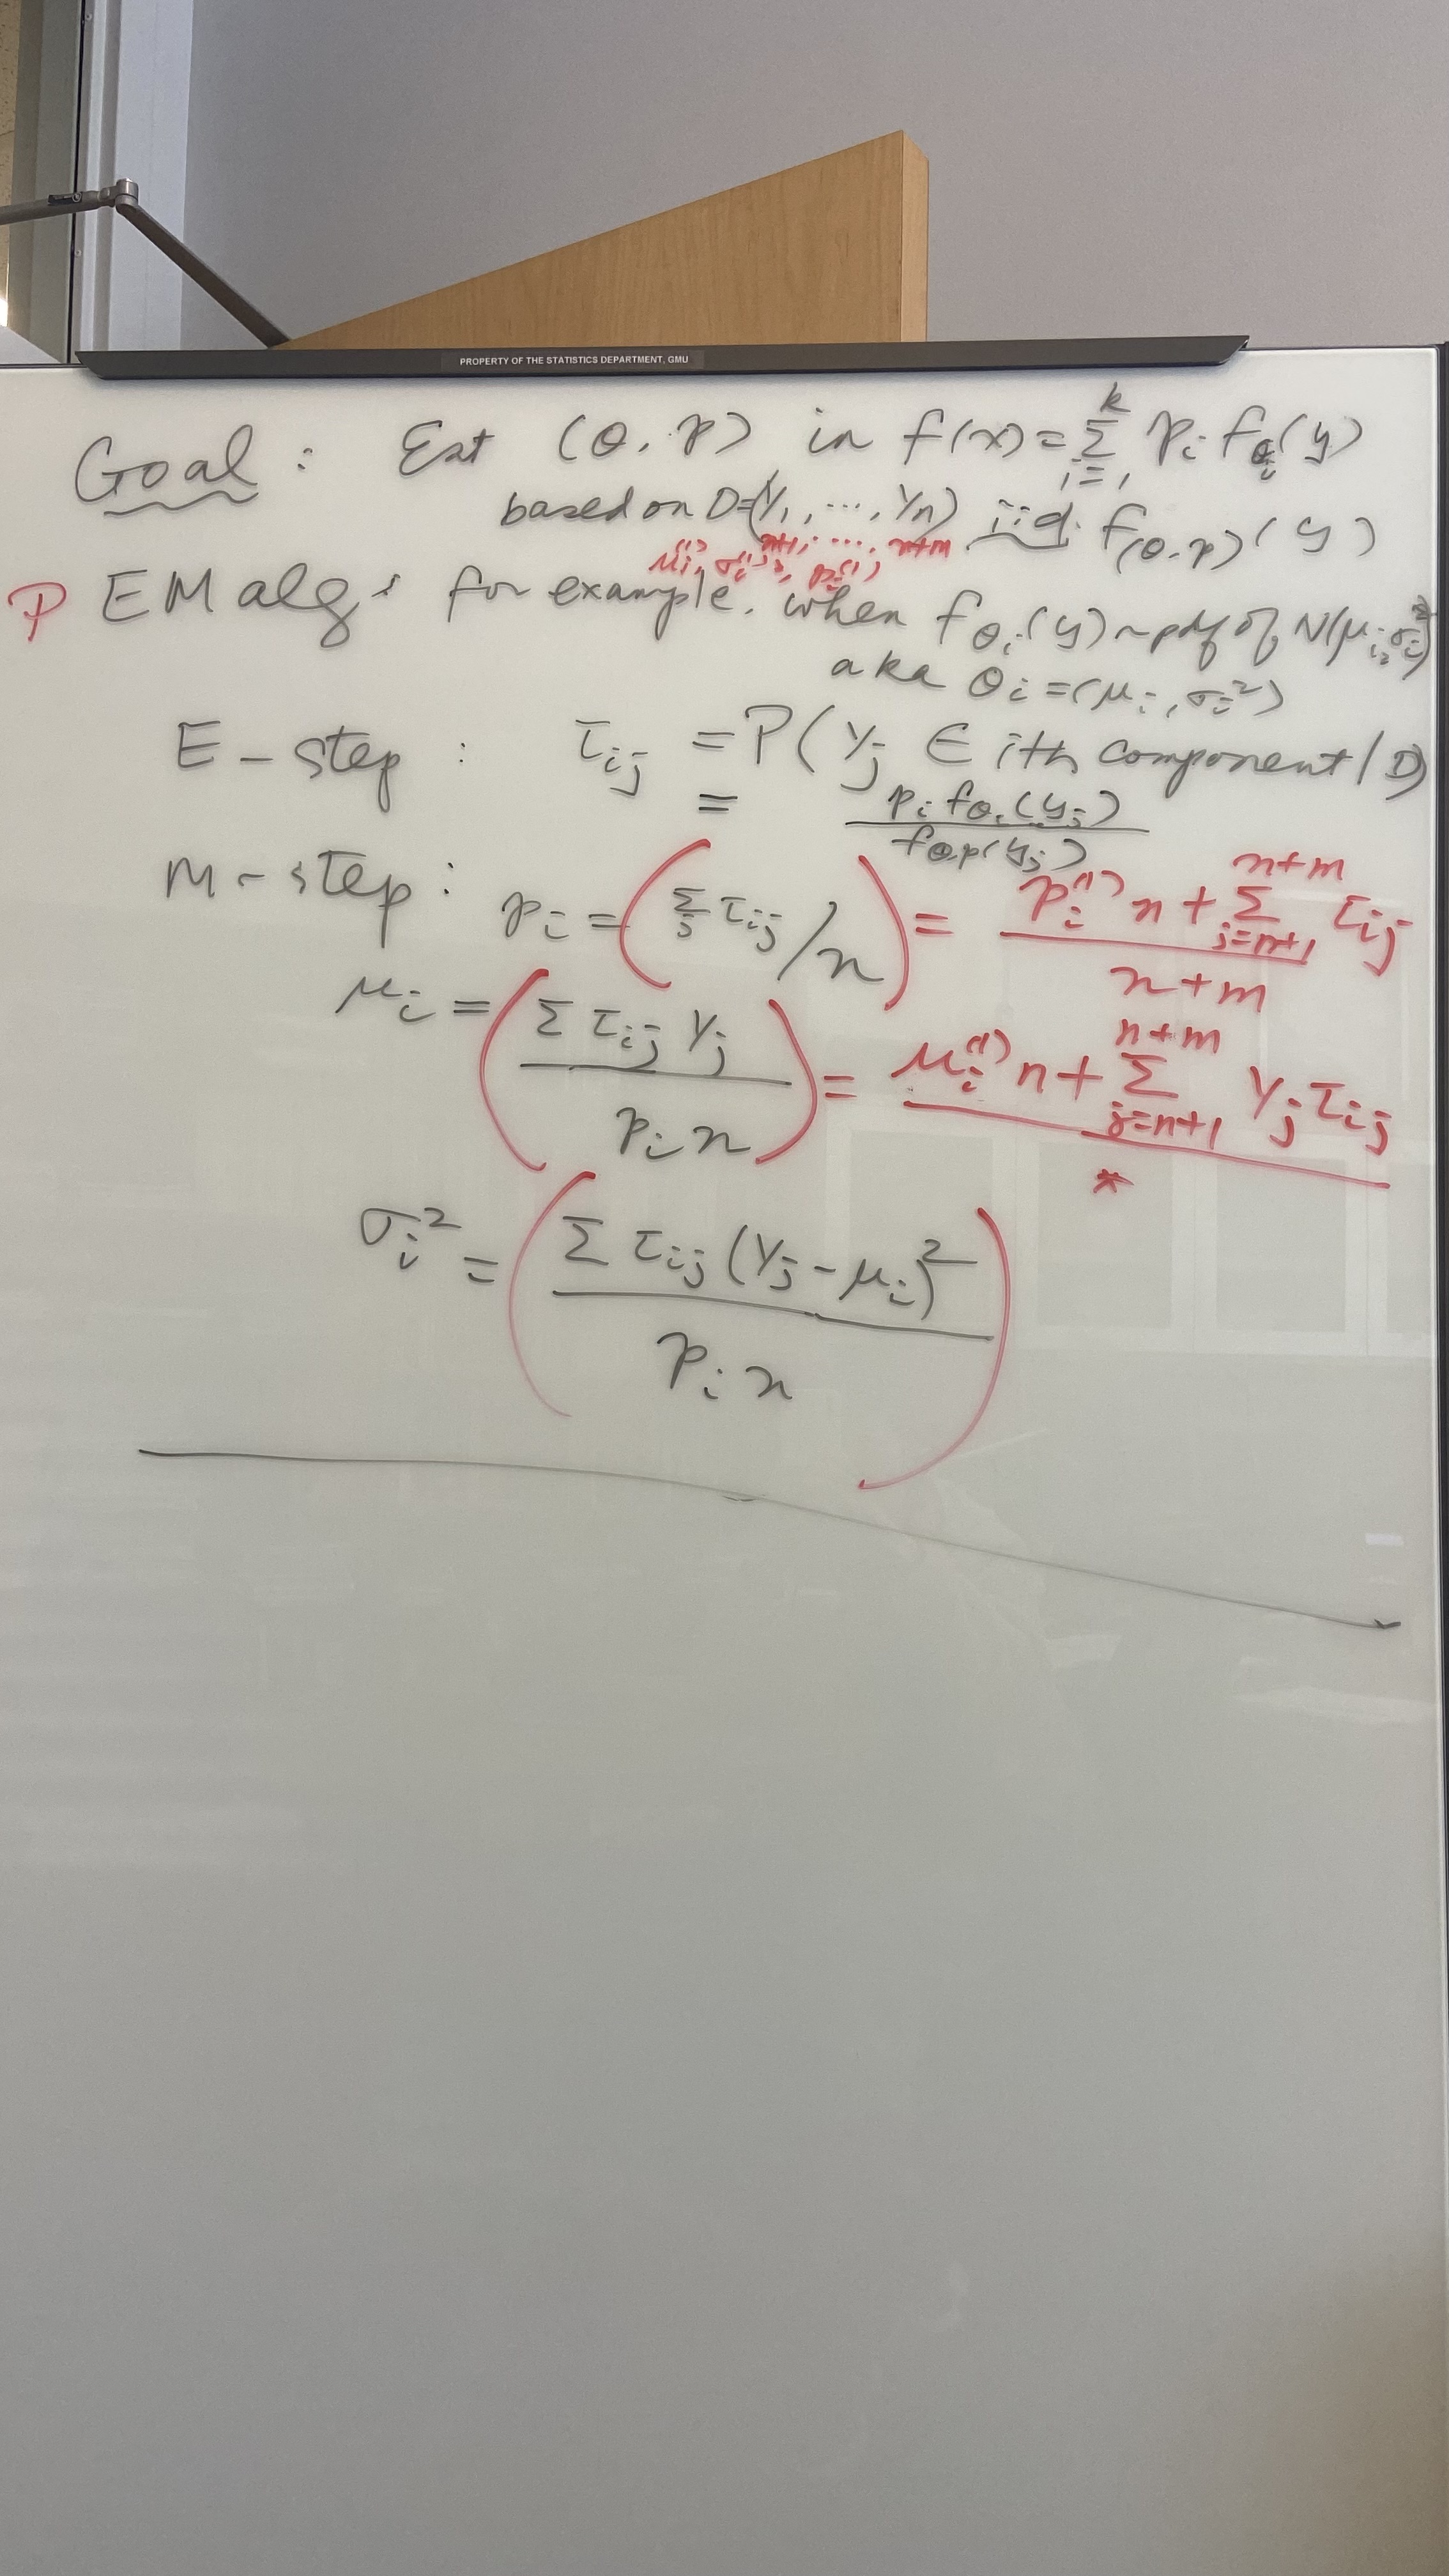 PROPERTY OF THE STATISTICS DEPARTMENT, GMU
Goal : Est (θ, p) in f(x) = Σ_{i=1}^{k} p_i f_{θ_i}(y)
based on D=(Y_1, ..., Y_n) iid. f_{(θ,p)}(y)
n+1, ..., n+m
μ_i^{(1)}, σ_i^{(1)2}, p_i^{(1)}
P EM alg : for example, when f_{θ_i}(y) ~ pdf of N(μ_i, σ_i^2)
aka θ_i = (μ_i, σ_i^2)
E-step : τ_{ij} = P(Y_j ∈ ith component | D)
= p_i f_{θ_i}(y_j) / f_{θ,p}(y_j)
M-step : p_i = (Σ_j τ_{ij} / n) = (p_i^{(1)} n + Σ_{j=n+1}^{n+m} τ_{ij}) / (n+m)
μ_i = (Σ τ_{ij} Y_j / p_i n) = (μ_i^{(1)} n + Σ_{j=n+1}^{n+m} Y_j τ_{ij}) / *
σ_i^2 = (Σ τ_{ij} (Y_j - μ_i)^2 / p_i n)